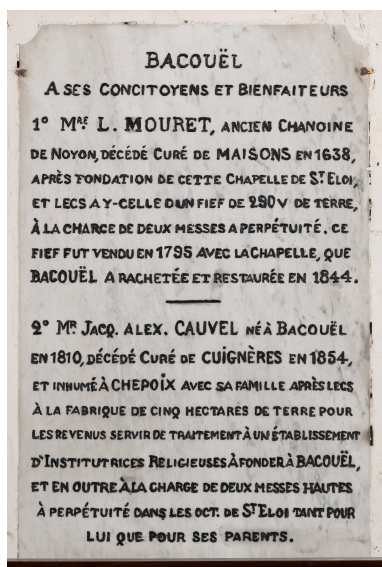 BACOUËL
A SES CONCITOYENS ET BIENFAITEURS
1° MRE L. MOURET, ANCIEN CHANOINE
DE NOYON, DÉCÉDÉ CURÉ DE MAISONS EN 1638,
APRÈS FONDATION DE CETTE CHAPELLE DE ST ELOI,
ET LECS A Y-CELLE D'UN FIEF DE 290 V DE TERRE,
À LA CHARGE DE DEUX MESSES A PERPÉTUITÉ. CE
FIEF FUT VENDU EN 1795 AVEC LA CHAPELLE, QUE
BACOUËL A RACHETÉE ET RESTAURÉE EN 1844.
2° MR JACQ. ALEX. CAUVEL NÉ À BACOUËL
EN 1810, DÉCÉDÉ CURÉ DE CUIGNÈRES EN 1854,
ET INHUMÉ À CHEPOIX AVEC SA FAMILLE APRÈS LECS
À LA FABRIQUE DE CINQ HECTARES DE TERRE POUR
LES REVENUS SERVIR DE TRAITEMENT À UN ÉTABLISSEMENT
D'INSTITUTRICES RELIGIEUSES À FONDER À BACOUËL,
ET EN OUTRE À LA CHARGE DE DEUX MESSES HAUTES
À PERPÉTUITÉ DANS LES OCT. DE ST ELOI TANT POUR
LUI QUE POUR SES PARENTS.